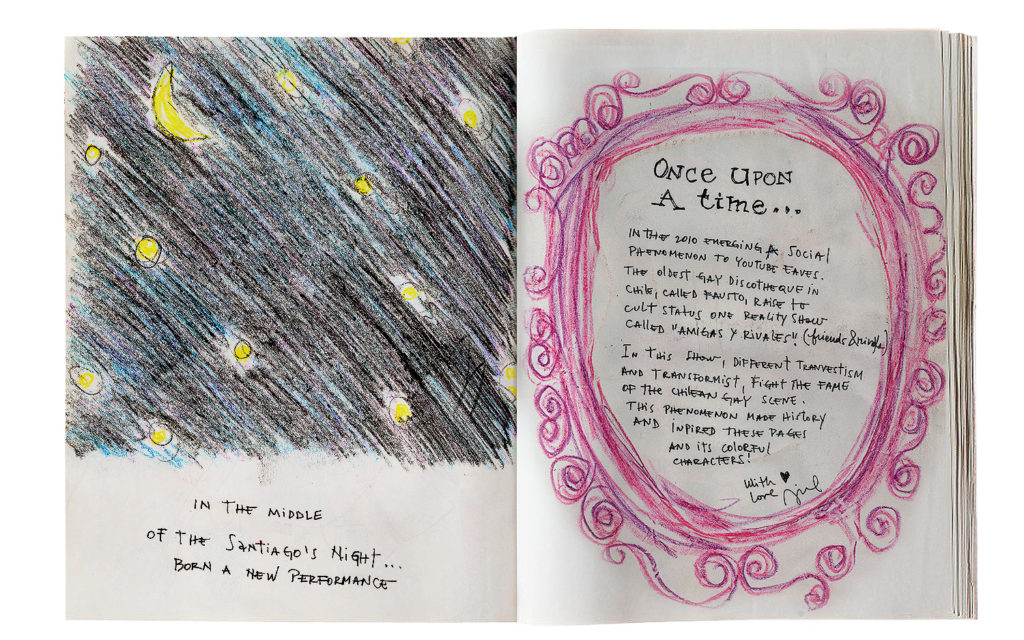 IN THE MIDDLE
OF THE SANTIAGO'S NIGHT...
BORN A NEW PERFORMANCE
ONCE UPON
A time...
IN THE 2010 EMERGING A SOCIAL
PHENOMENON TO YOUTUBE EAVES.
THE OLDEST GAY DISCOTHEQUE IN
CHILE, CALLED FAUSTO, RAISE TO
CULT STATUS ONE REALITY SHOW
CALLED "AMIGAS Y RIVALES" (friends & rivals)
IN THIS SHOW, DIFFERENT TRANVESTISM
AND TRANSFORMIST, FIGHT THE FAME
OF THE CHILEAN GAY SCENE.
THIS PHENOMENON MADE HISTORY
AND INPIRED THESE PAGES
AND ITS COLORFUL
CHARACTERS!
With
Love